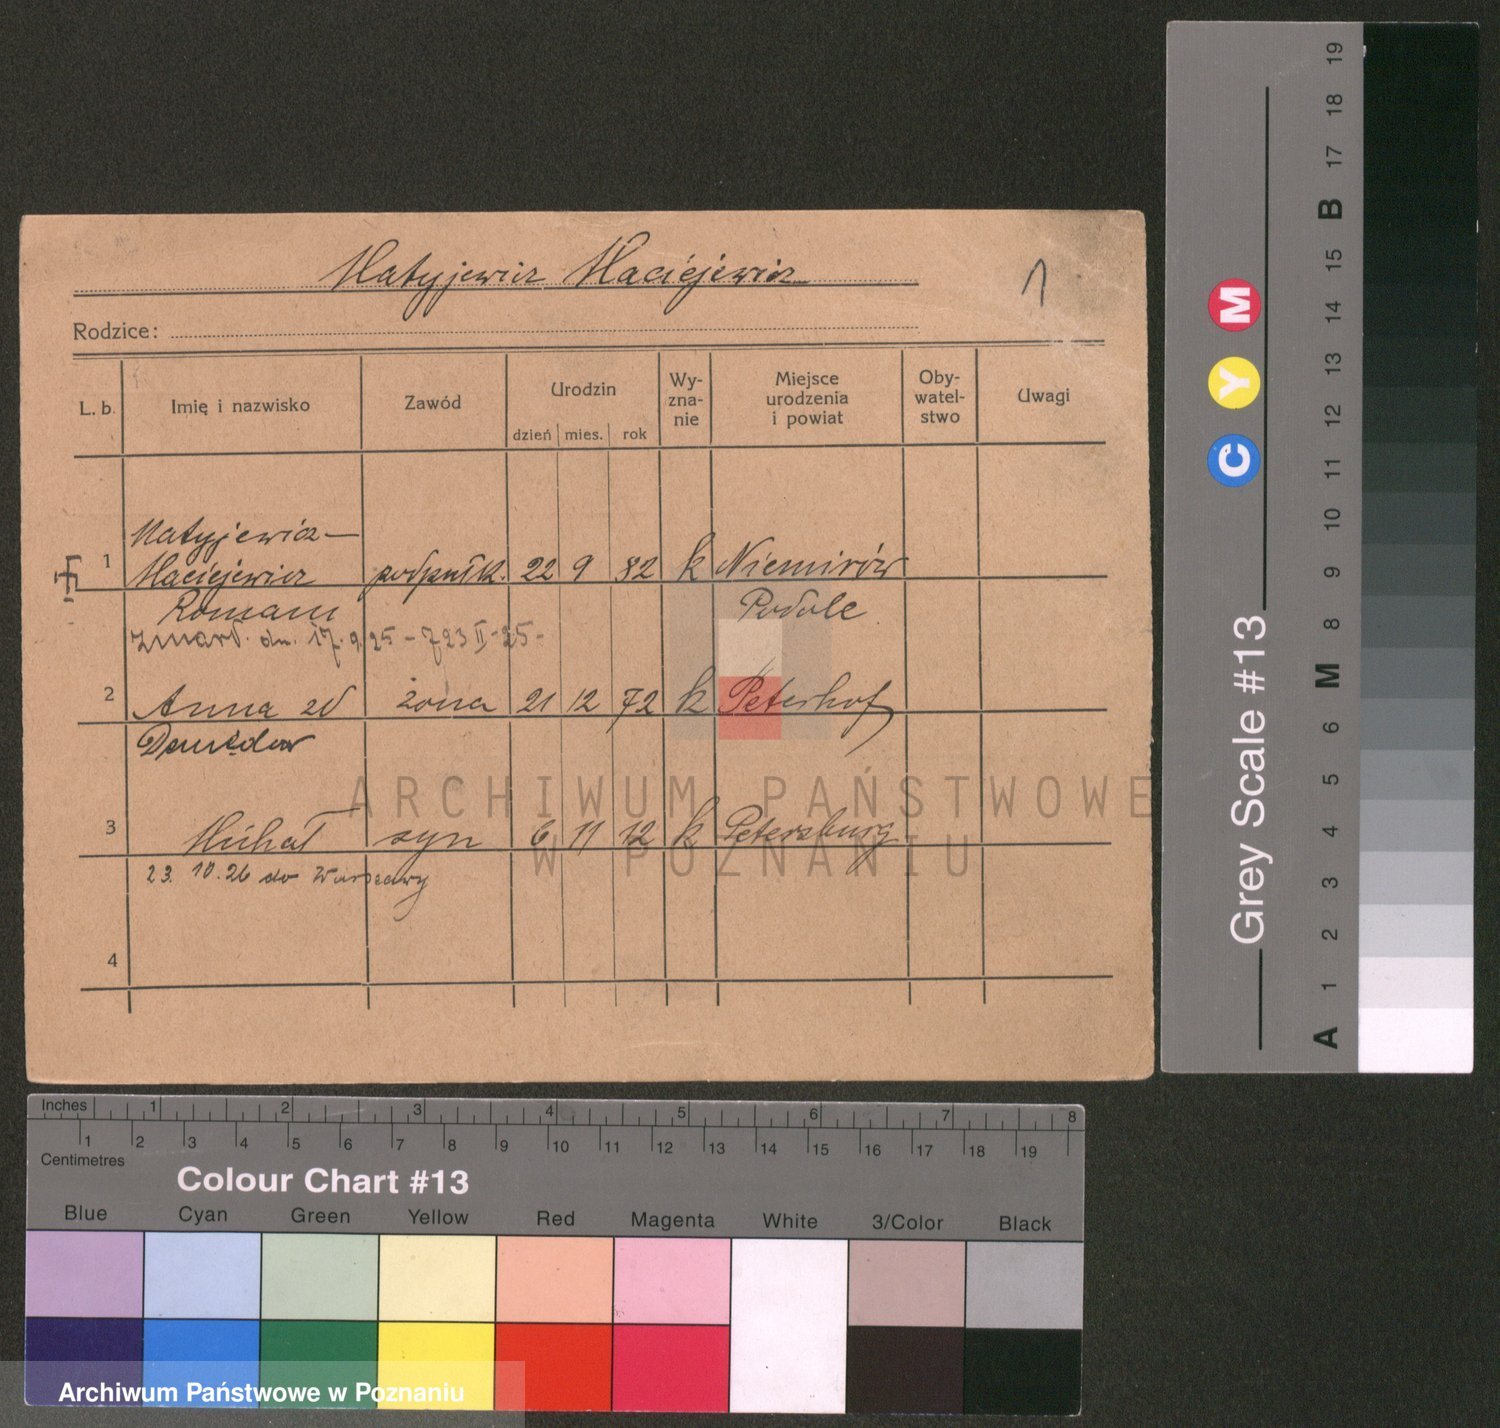 Matyjewicz Maciejewicz
1
Rodzice:
L. b. Imię i nazwisko Zawód Urodzin dzień mies. rok Wy-zna-nie Miejsce urodzenia i powiat Oby-watel-stwo Uwagi
Matyjewicz—
1 Maciejewicz podpułk. 22 9 82 k Niemirów
Roman Podole
zmarł. dn. 17.9.25 - 723 II-25-
2 Anna zd żona 21 12 72 k Peterhof
3 Michał syn 6 11 12 k Petersburg
23. 10.26 do Warszawy
4
ARCHIWUM PAŃSTWOWE
W POZNANIU
Grey Scale #13
C Y M
A 1 2 3 4 5 6 M 8 9 10 11 12 13 14 15 B 17 18 19
Inches 1 2 3 4 5 6 7 8
1 2 3 4 5 6 7 8 9 10 11 12 13 14 15 16 17 18 19
Centimetres
Colour Chart #13
Blue Cyan Green Yellow Red Magenta White 3/Color Black
Archiwum Państwowe w Poznaniu